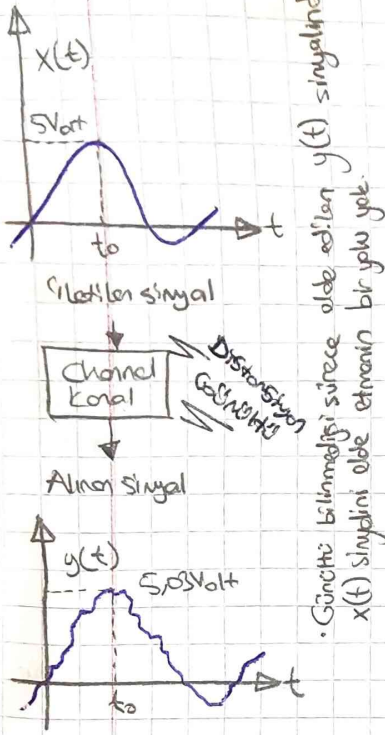 x(t)
5Volt
t
to
İletilen sinyal
Channel
Kanal
Distorsiyon
Gürültü
Alınan Sinyal
y(t)
5,03Volt
t
to
• Gürültü bilinmediği sürece elde edilen y(t) sinyalind
x(t) sinyalini elde etmenin bir yolu yok.